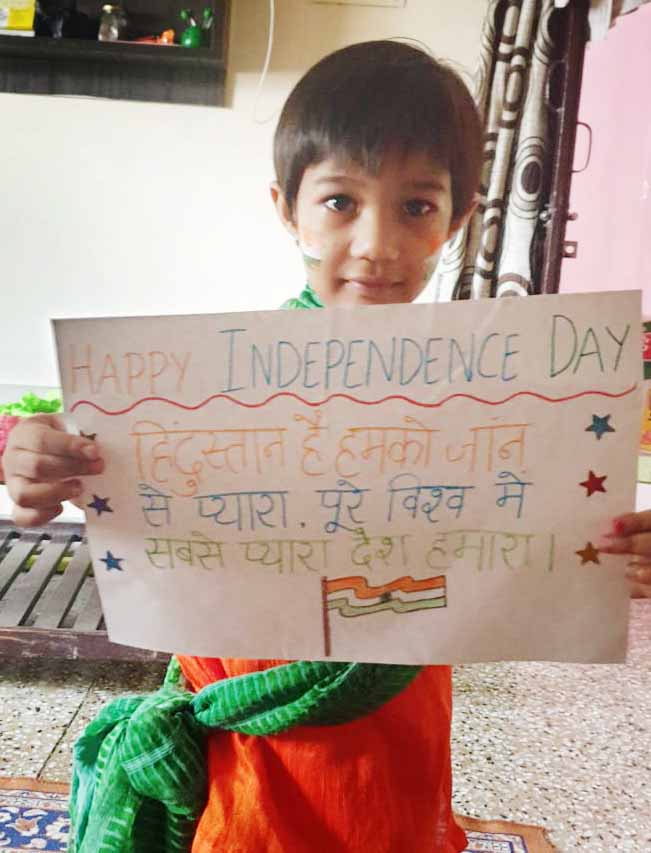 HAPPY INDEPENDENCE DAY
हिंदुस्तान है हमको जांन
से प्यारा. पूरे विश्व मे
सबसे प्यारा देश हमारा।